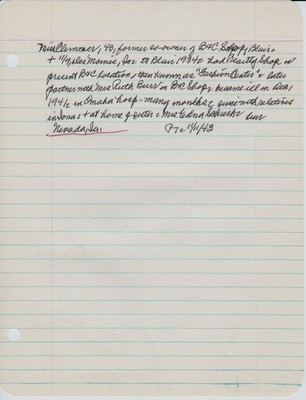 Miss Clemmer, 40, former co-owner of B&C Shop, Blair
+ Des Moines, Ia to Blair 1934 & had Beauty Shop in
present B&C location, then known as "Fashion Center" & later
partner with Mrs Ruth Burr in B&C Shop; became ill in Dec,
1941, in Omaha hosp many months & since with relatives
in Iowa + at home of sister = Mrs Edna near
Nevada, Ia. 11/11/43